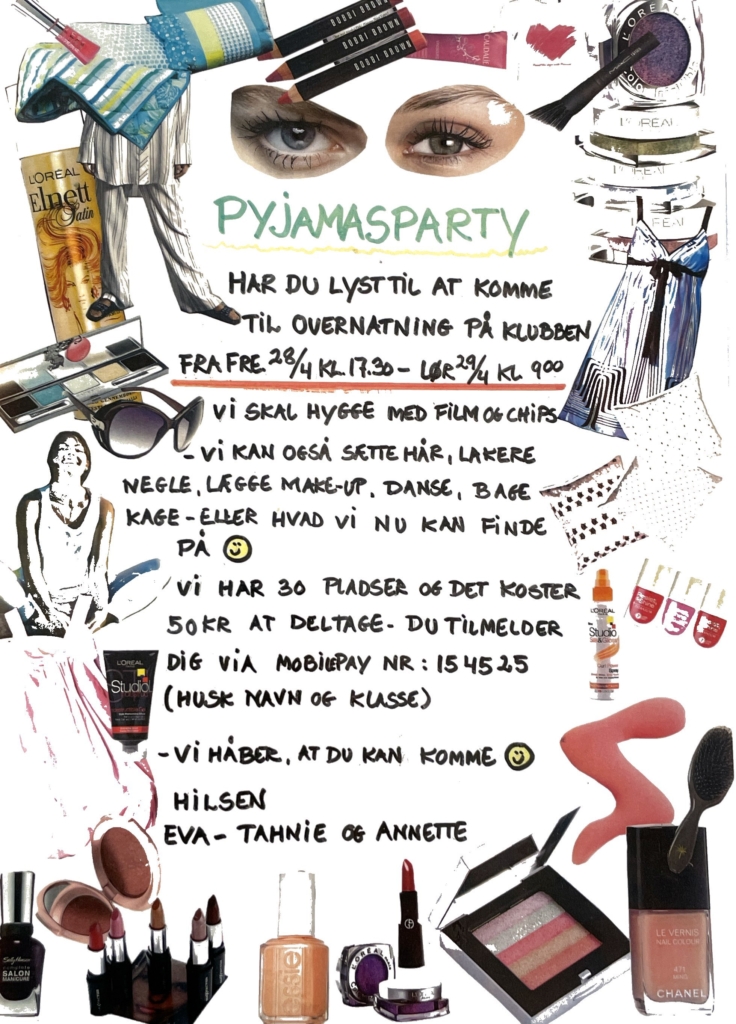 BOBBI BROWN
BOBBI BROWN
BOBBI BROWN
CAUDALIE
L'ORÉAL
L'ORÉAL
L'ORÉAL
L'ORÉAL
Elnett
Satin
PYJAMASPARTY
HAR DU LYST TIL AT KOMME
TIL OVERNATNING PÅ KLUBBEN
FRA FRE. 28/4 KL. 17.30 - LØR 29/4 KL 9 00
Vi SKAL HYGGE MED FILM OG CHIPS
- Vi KAN OGSÅ SÆTTE HÅR, LAKERE
NEGLE, LÆGGE MAKE-UP, DANSE, BAGE
KAGE - ELLER HVAD Vi NU KAN FiNDE
PÅ
Vi HAR 30 PLADSER OG DET KOSTER
50 KR AT DELTAGE - DU TILMELDER
DiG ViA MOBILEPAY NR: 154525
(HUSK NAVN OG KLASSE)
- Vi HÅBER, AT DU KAN KOMME
HiLSEN
EVA - TAHNiE OG ANNETTE
L'ORÉAL
Studio
L'ORÉAL
Studio
Sally Hansen
SALON
MANICURE
essie
L'ORÉAL
LE VERNIS
NAIL COLOUR
471
CHANEL